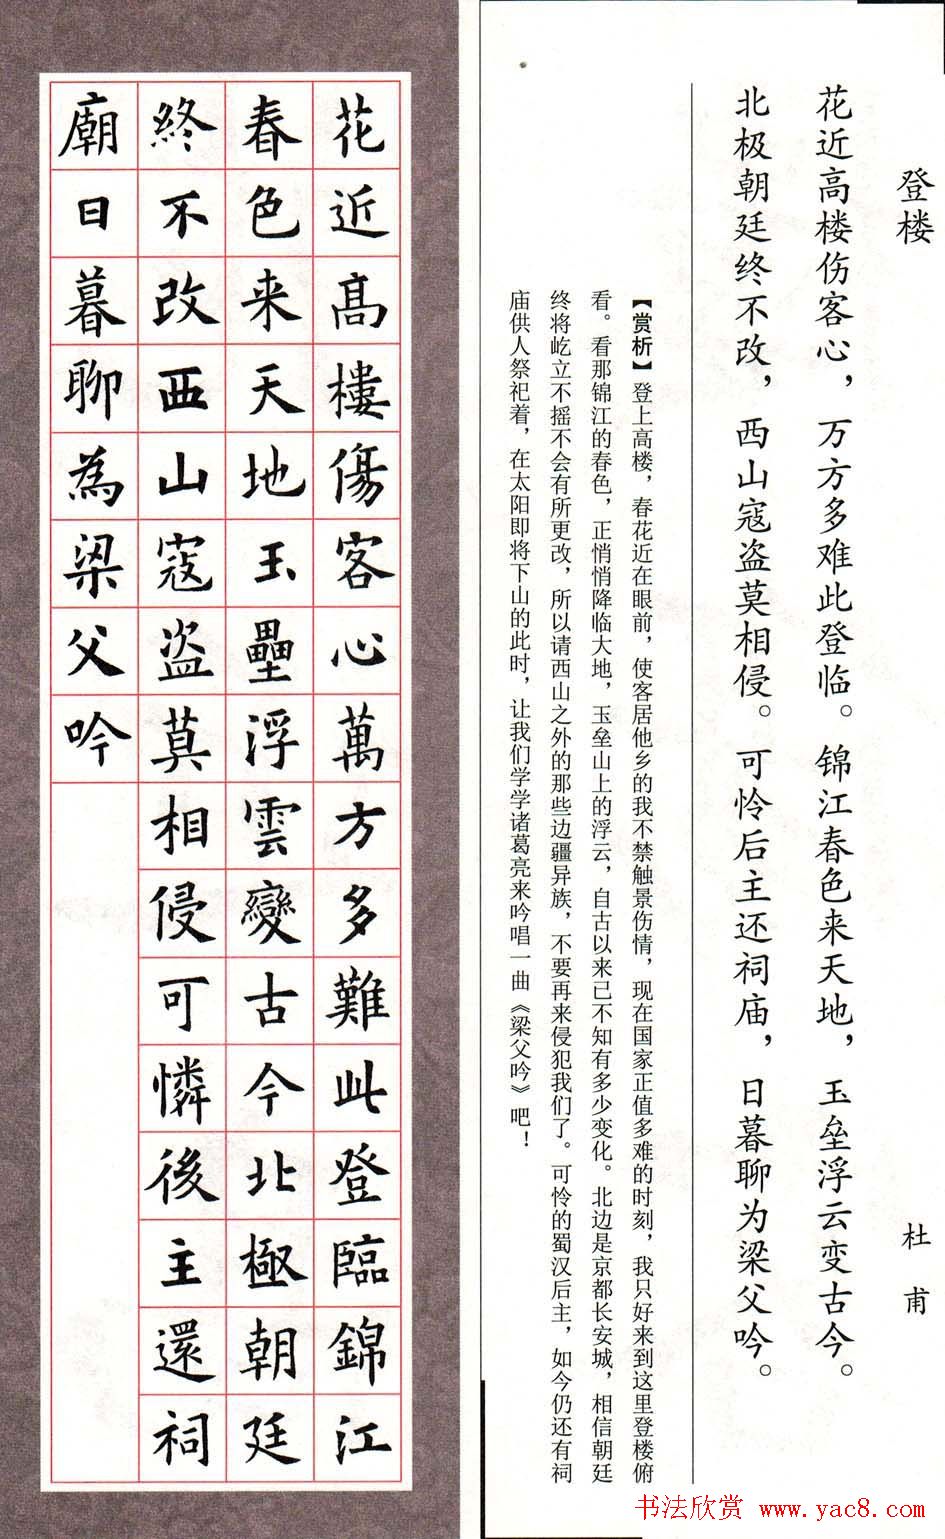 登楼
杜甫
花近高楼伤客心，万方多难此登临。锦江春色来天地，玉垒浮云变古今。
北极朝廷终不改，西山寇盗莫相侵。可怜后主还祠庙，日暮聊为梁父吟。
【赏析】登上高楼，春花近在眼前，使客居他乡的我不禁触景伤情，现在国家正值多难的时刻，我只好来到这里登楼俯
看。看那锦江的春色，正悄悄降临大地，玉垒山上的浮云，自古以来已不知有多少变化。北边是京都长安城，相信朝廷
终将屹立不摇不会有所更改，所以请西山之外的那些边疆异族，不要再来侵犯我们了。可怜的蜀汉后主，如今仍还有祠
庙供人祭祀着，在太阳即将下山的此时，让我们学学诸葛亮来吟唱一曲《梁父吟》吧！
花近高樓傷客心萬方多難此登臨錦江
春色来天地玉壘浮雲變古今北極朝廷
終不改西山寇盗莫相侵可憐後主還祠
廟日暮聊為梁父吟
书法欣赏 www.yac8.com